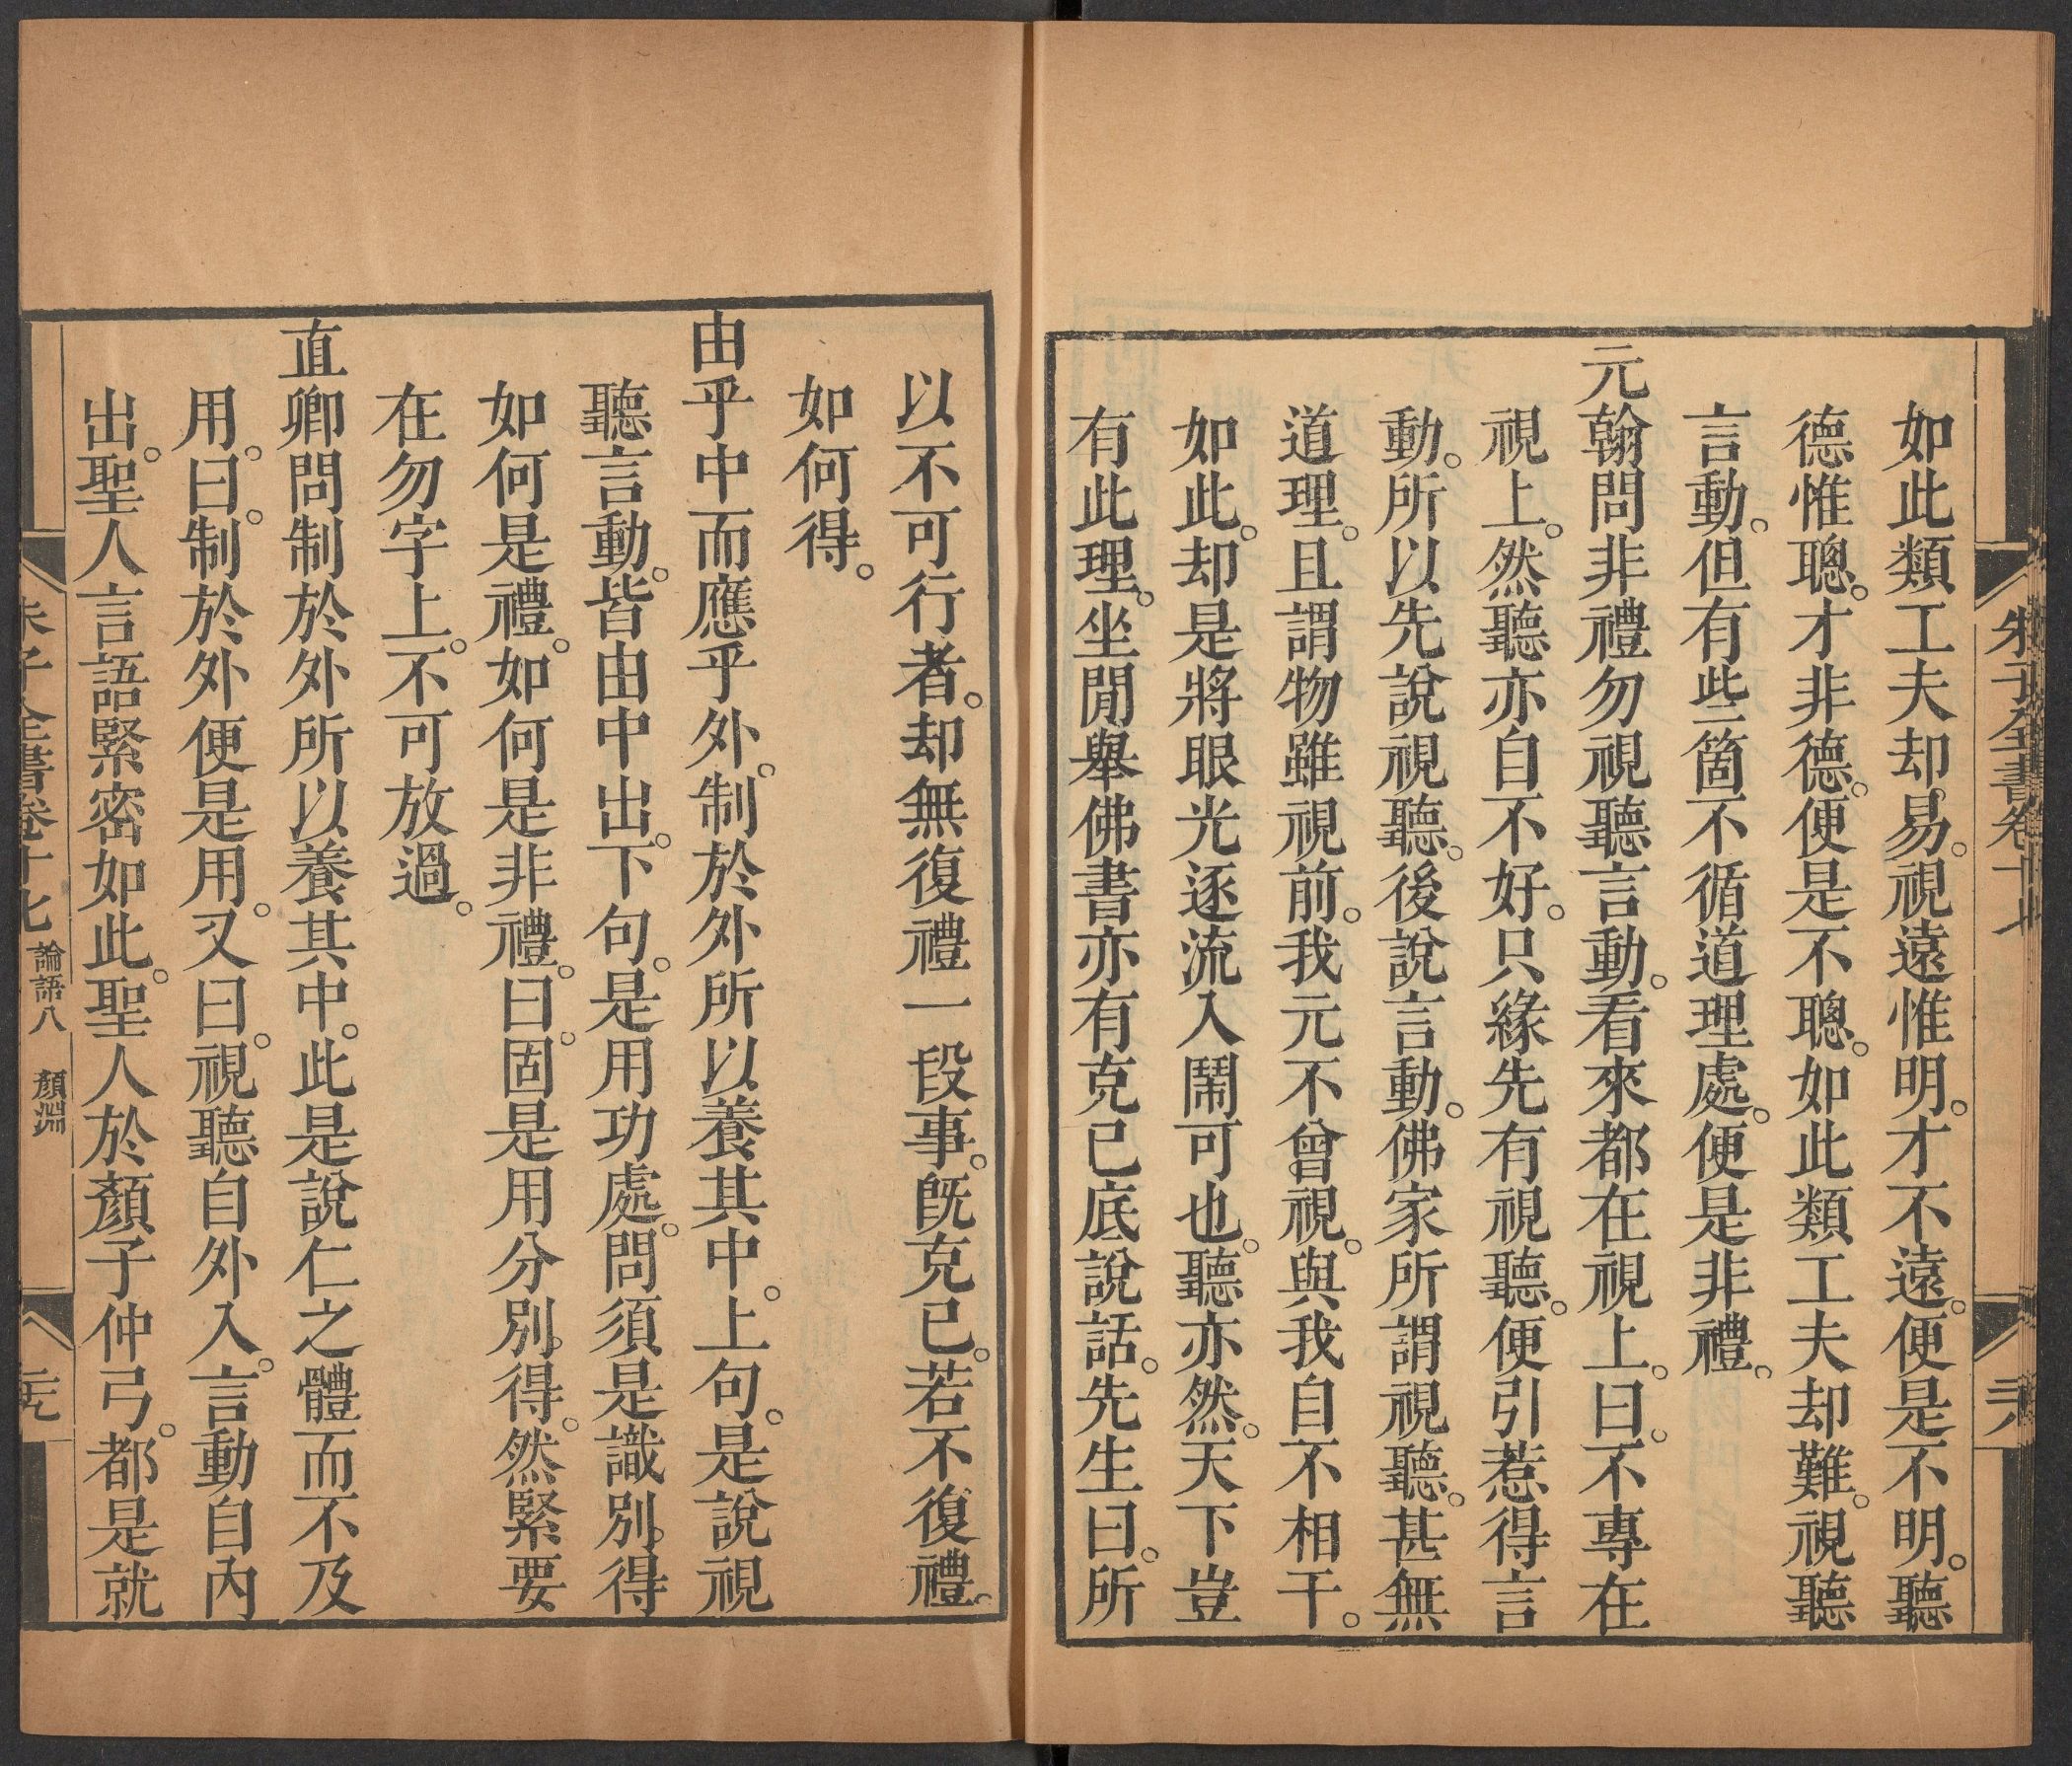 朱子全書卷十七
如此類工夫却易。視遠惟明。才不遠。便是不明。聽
德惟聰。才非德。便是不聰。如此類工夫却難。視聽
言動。但有些箇不循道理處。便是非禮。
元翰問非禮勿視聽言動。看來都在視上。曰。不專在
視上。然聽亦自不好。只緣先有視聽。便引惹得言
動。所以先說視聽。後說言動。佛家所謂視聽。甚無
道理。且謂物雖視前。我元不曾視。與我自不相干。
如此。却是將眼光逐流入鬧可也。聽亦然。天下豈
有此理。坐閒舉佛書亦有克己底說話。先生曰。所
以不可行者。却無復禮一段事。旣克己。若不復禮。
如何得。
由乎中而應乎外。制於外所以養其中。上句。是說視
聽言動。皆由中出。下句。是用功處。問須是識別。得
如何是禮。如何是非禮。曰。固是用分別。得。然緊要
在勿字上。不可放過。
直卿問制於外所以養其中。此是說仁之體而不及
用。曰。制於外便是用。又曰。視聽自外入。言動自內
出。聖人言語緊密如此。聖人於顏子仲弓。都是就
朱子全書卷十七 論語八 顏淵